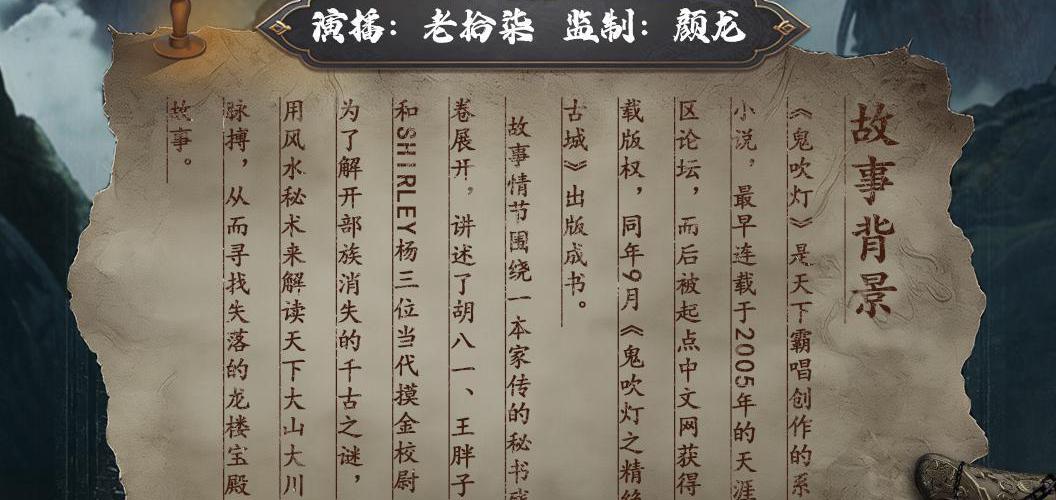 演播：老拾柒 监制：颜龙
故事背景
《鬼吹灯》是天下霸唱创作的系
小说，最早连载于2005年的天涯
区论坛，而后被起点中文网获得
载版权，同年9月《鬼吹灯之精绝
古城》出版成书。
故事情节围绕一本家传的秘书残
卷展开，讲述了胡八一、王胖子
和SHIRLEY杨三位当代摸金校尉
为了解开部族消失的千古之谜，
用风水秘术来解读天下大山大川
脉搏，从而寻找失落的龙楼宝殿
故事。